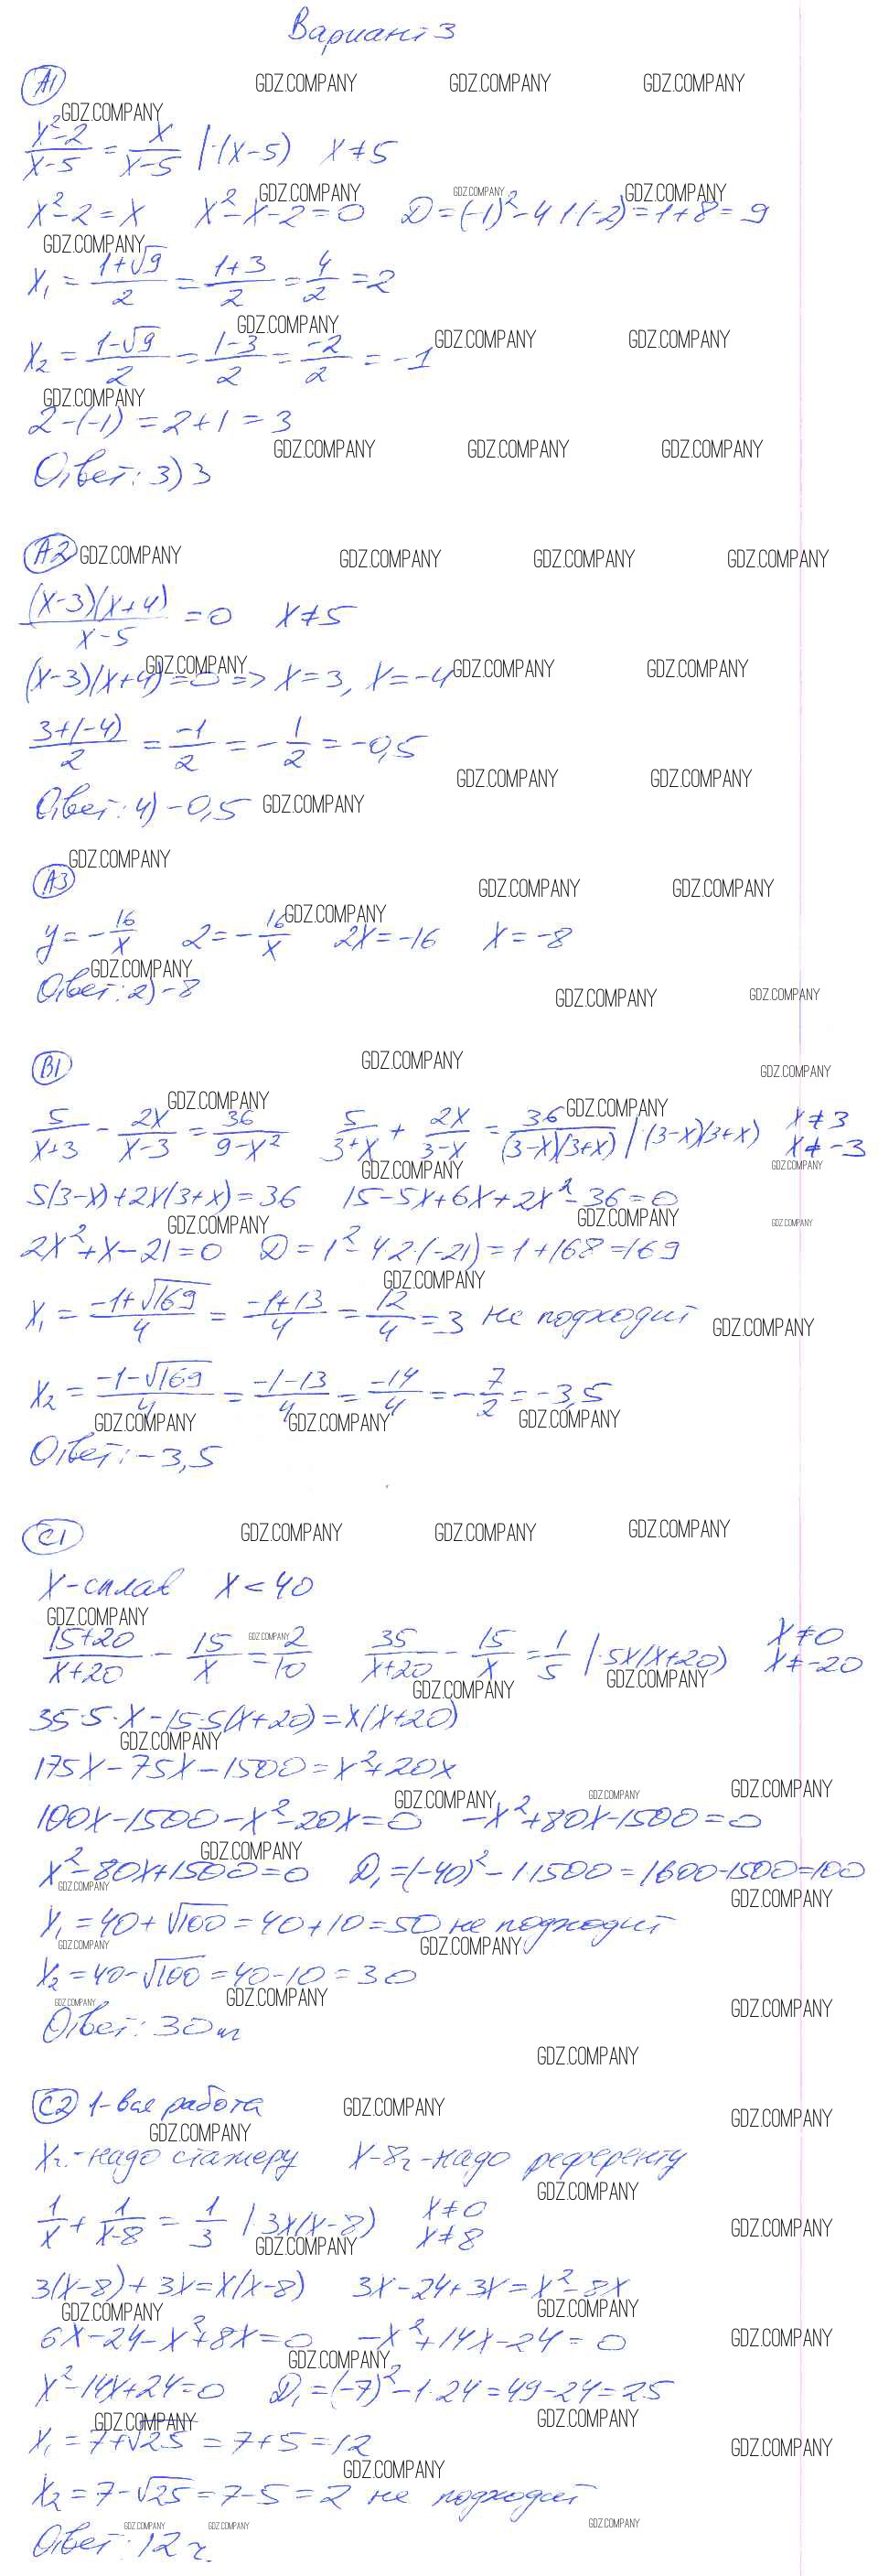 Вариант 3
А1
(x²-2)/(x-5) = x/(x-5) | ·(x-5)   x≠5
x²-2=x   x²-x-2=0   D=(-1)²-4·1·(-2)=1+8=9
x₁ = (1+√9)/2 = (1+3)/2 = 4/2 = 2
x₂ = (1-√9)/2 = (1-3)/2 = -2/2 = -1
2-(-1)=2+1=3
Ответ: 3) 3
А2
(x-3)(x+4)/(x-5) = 0   x≠5
(x-3)(x+4)=0 => x=3, x=-4
(3+(-4))/2 = -1/2 = -1/2 = -0,5
Ответ: 4) -0,5
А3
y = -16/x   2 = -16/x   2x=-16   x=-8
Ответ: 2) -8
В1
5/(x+3) - 2x/(x-3) = 36/(9-x²)   5/(3+x) + 2x/(3-x) = 36/((3-x)(3+x)) | (3-x)(3+x)   x≠3   x≠-3
5(3-x)+2x(3+x)=36   15-5x+6x+2x²-36=0
2x²+x-21=0   D=1²-4·2·(-21)=1+168=169
x₁ = (-1+√169)/4 = (-1+13)/4 = 12/4 = 3 не подходит
x₂ = (-1-√169)/4 = (-1-13)/4 = -14/4 = -7/2 = -3,5
Ответ: -3,5
С1
x-сплав   x<40
(15+20)/(x+20) - 15/x = 2/10   35/(x+20) - 15/x = 1/5 | ·5x(x+20)   x≠0   x≠-20
35·5·x-15·5(x+20)=x(x+20)
175x-75x-1500=x²+20x
100x-1500-x²-20x=0   -x²+80x-1500=0
x²-80x+1500=0   D₁=(-40)²-1·1500=1600-1500=100
x₁=40+√100=40+10=50 не подходит
x₂=40-√100=40-10=30
Ответ: 30 т
С2 1-вся работа
xч.-надо стажеру   x-8ч-надо референту
1/x + 1/(x-8) = 1/3 | ·3x(x-8)   x≠0   x≠8
3(x-8)+3x=x(x-8)   3x-24+3x=x²-8x
6x-24-x²+8x=0   -x²+14x-24=0
x²-14x+24=0   D₁=(-7)²-1·24=49-24=25
x₁=7+√25=7+5=12
x₂=7-√25=7-5=2 не подходит
Ответ: 12 ч.
GDZ.COMPANY